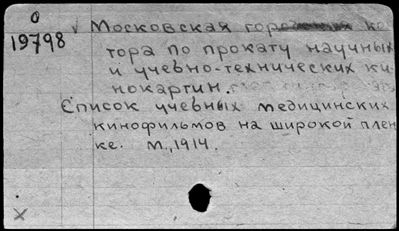 О
19798
Московская ко
тора по прокату научных
и учебно-технических ки
нокартин.
Список учебных медицинских
кинофильмов на широкой плен
ке. М., 1914.